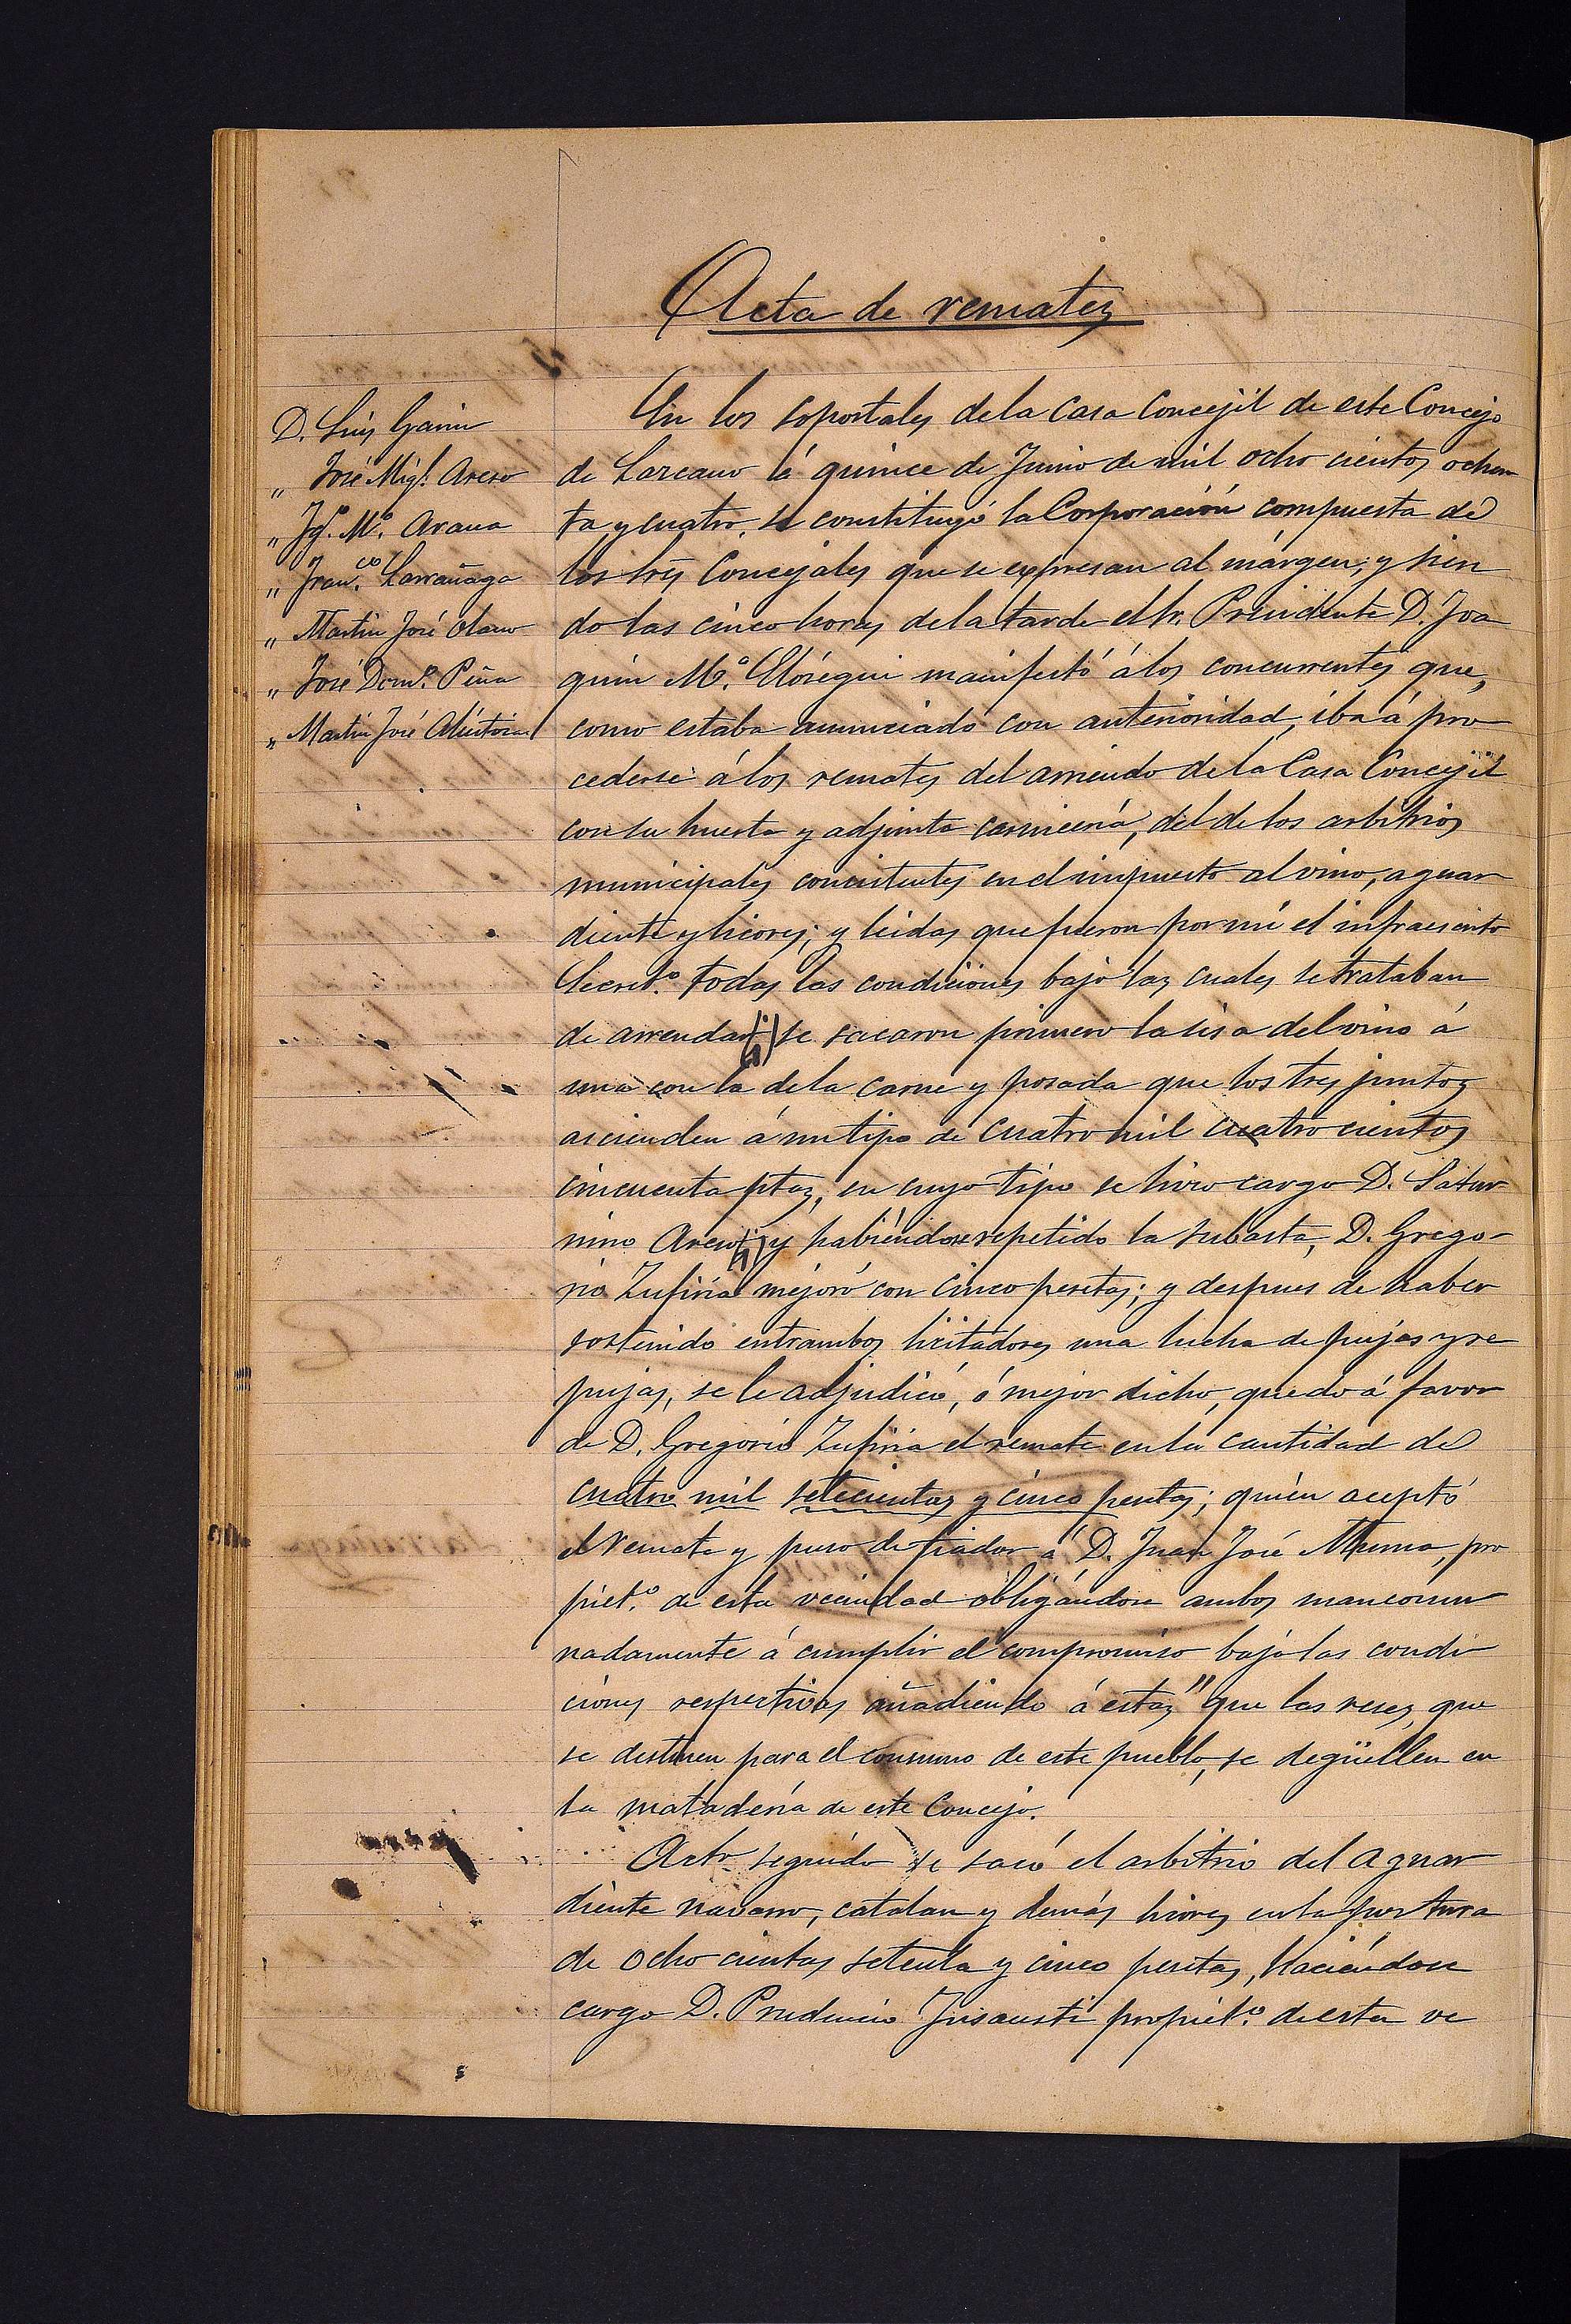 Acta de remates
D. Luis Garin
„ José Mig.l Areso
„ Ig.o M.a Arana
„ Fran.co Larrañaga
„ Martin José Olano
„ José Dom.o Piña
„ Martin José
En los soportales de la Casa Concejil de este Concejo
de Lazcano á quince de Junio de mil ocho cientos ochen
ta y cuatro, se constituyó la Corporación compuesta de
los Sres Concejales que se expresan al márgen; y sien
do las cinco horas de la tarde el Sr. Presidente D. Joa
quin M.a Elósegui manifestó á los concurrentes que,
como estaba anunciado con anterioridad, iba á pro
cederse á los remates del arriendo de la Casa Concejil
con su huerta y adjunta carnicería, del de los arbitrios
municipales concistentes en el impuesto al vino, aguar
diente y licores; y leidas que fueron por mí el infraescrito
Secret.o todas las condiciones bajo las cuales se trataban
de arrendar se sacaron primero la sisa del vino á
una con la de la carne y posada que los tres juntos
ascienden á un tipo de cuatro mil cuatro cientos
cincuenta ptas, en cuyo tipo se hizo cargo D. Satur
nino Areso y habiéndose repetido la subasta, D. Grego-
rio Zufiria mejoró con cinco pesetas; y despues de haber
sostenido entrambos licitadores una lucha de pujas y re
pujas, se le adjudicó, ó mejor dicho, quedó á favor
de D. Gregorio Zufiria el remate en la cantidad de
cuatro mil setecientas y cinco pesetas; quién aceptó
el remate y puso de fiador á D. Juan José pro
piet.o de esta vecindad obligándose ambos mancomu
nadamente á cumplir el compromiso bajo las condi
ciones respectivas añadiendo á estas "que las reses, que
se destinen para el consumo de este pueblo, se degüellen en
la matadería de este Concejo.
Acto seguido se sacó el arbitrio del aguar
diente navarro, catalan y demás licores en la postura
de ocho cientas setenta y cinco pesetas, haciéndose
cargo D. Prudencio Insausti propiet.o de esta ve